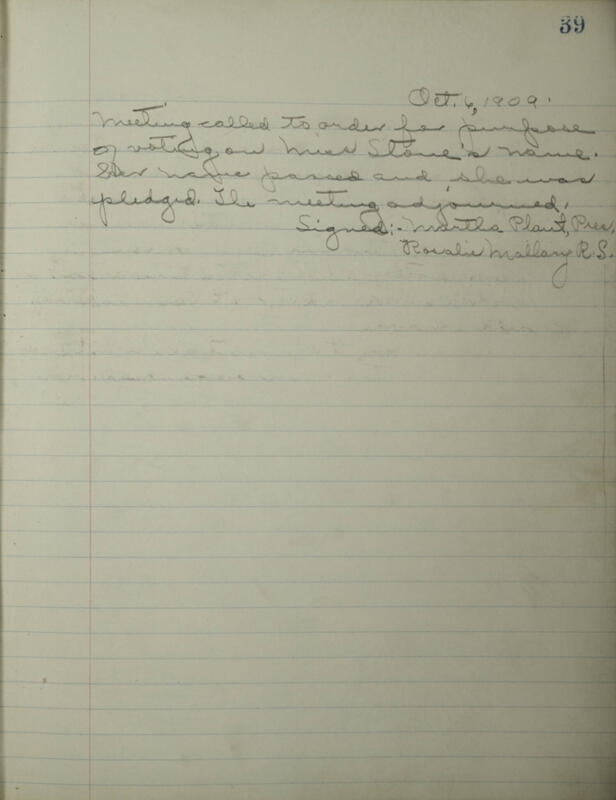 39
Oct. 6, 1909.
Meeting called to order for purpose
of voting on Miss Stone's name.
Her name passed and she was
pledged. The meeting adjourned.
Signed:- Martha Plant, Pres.
Rosalie Mallary R.S.